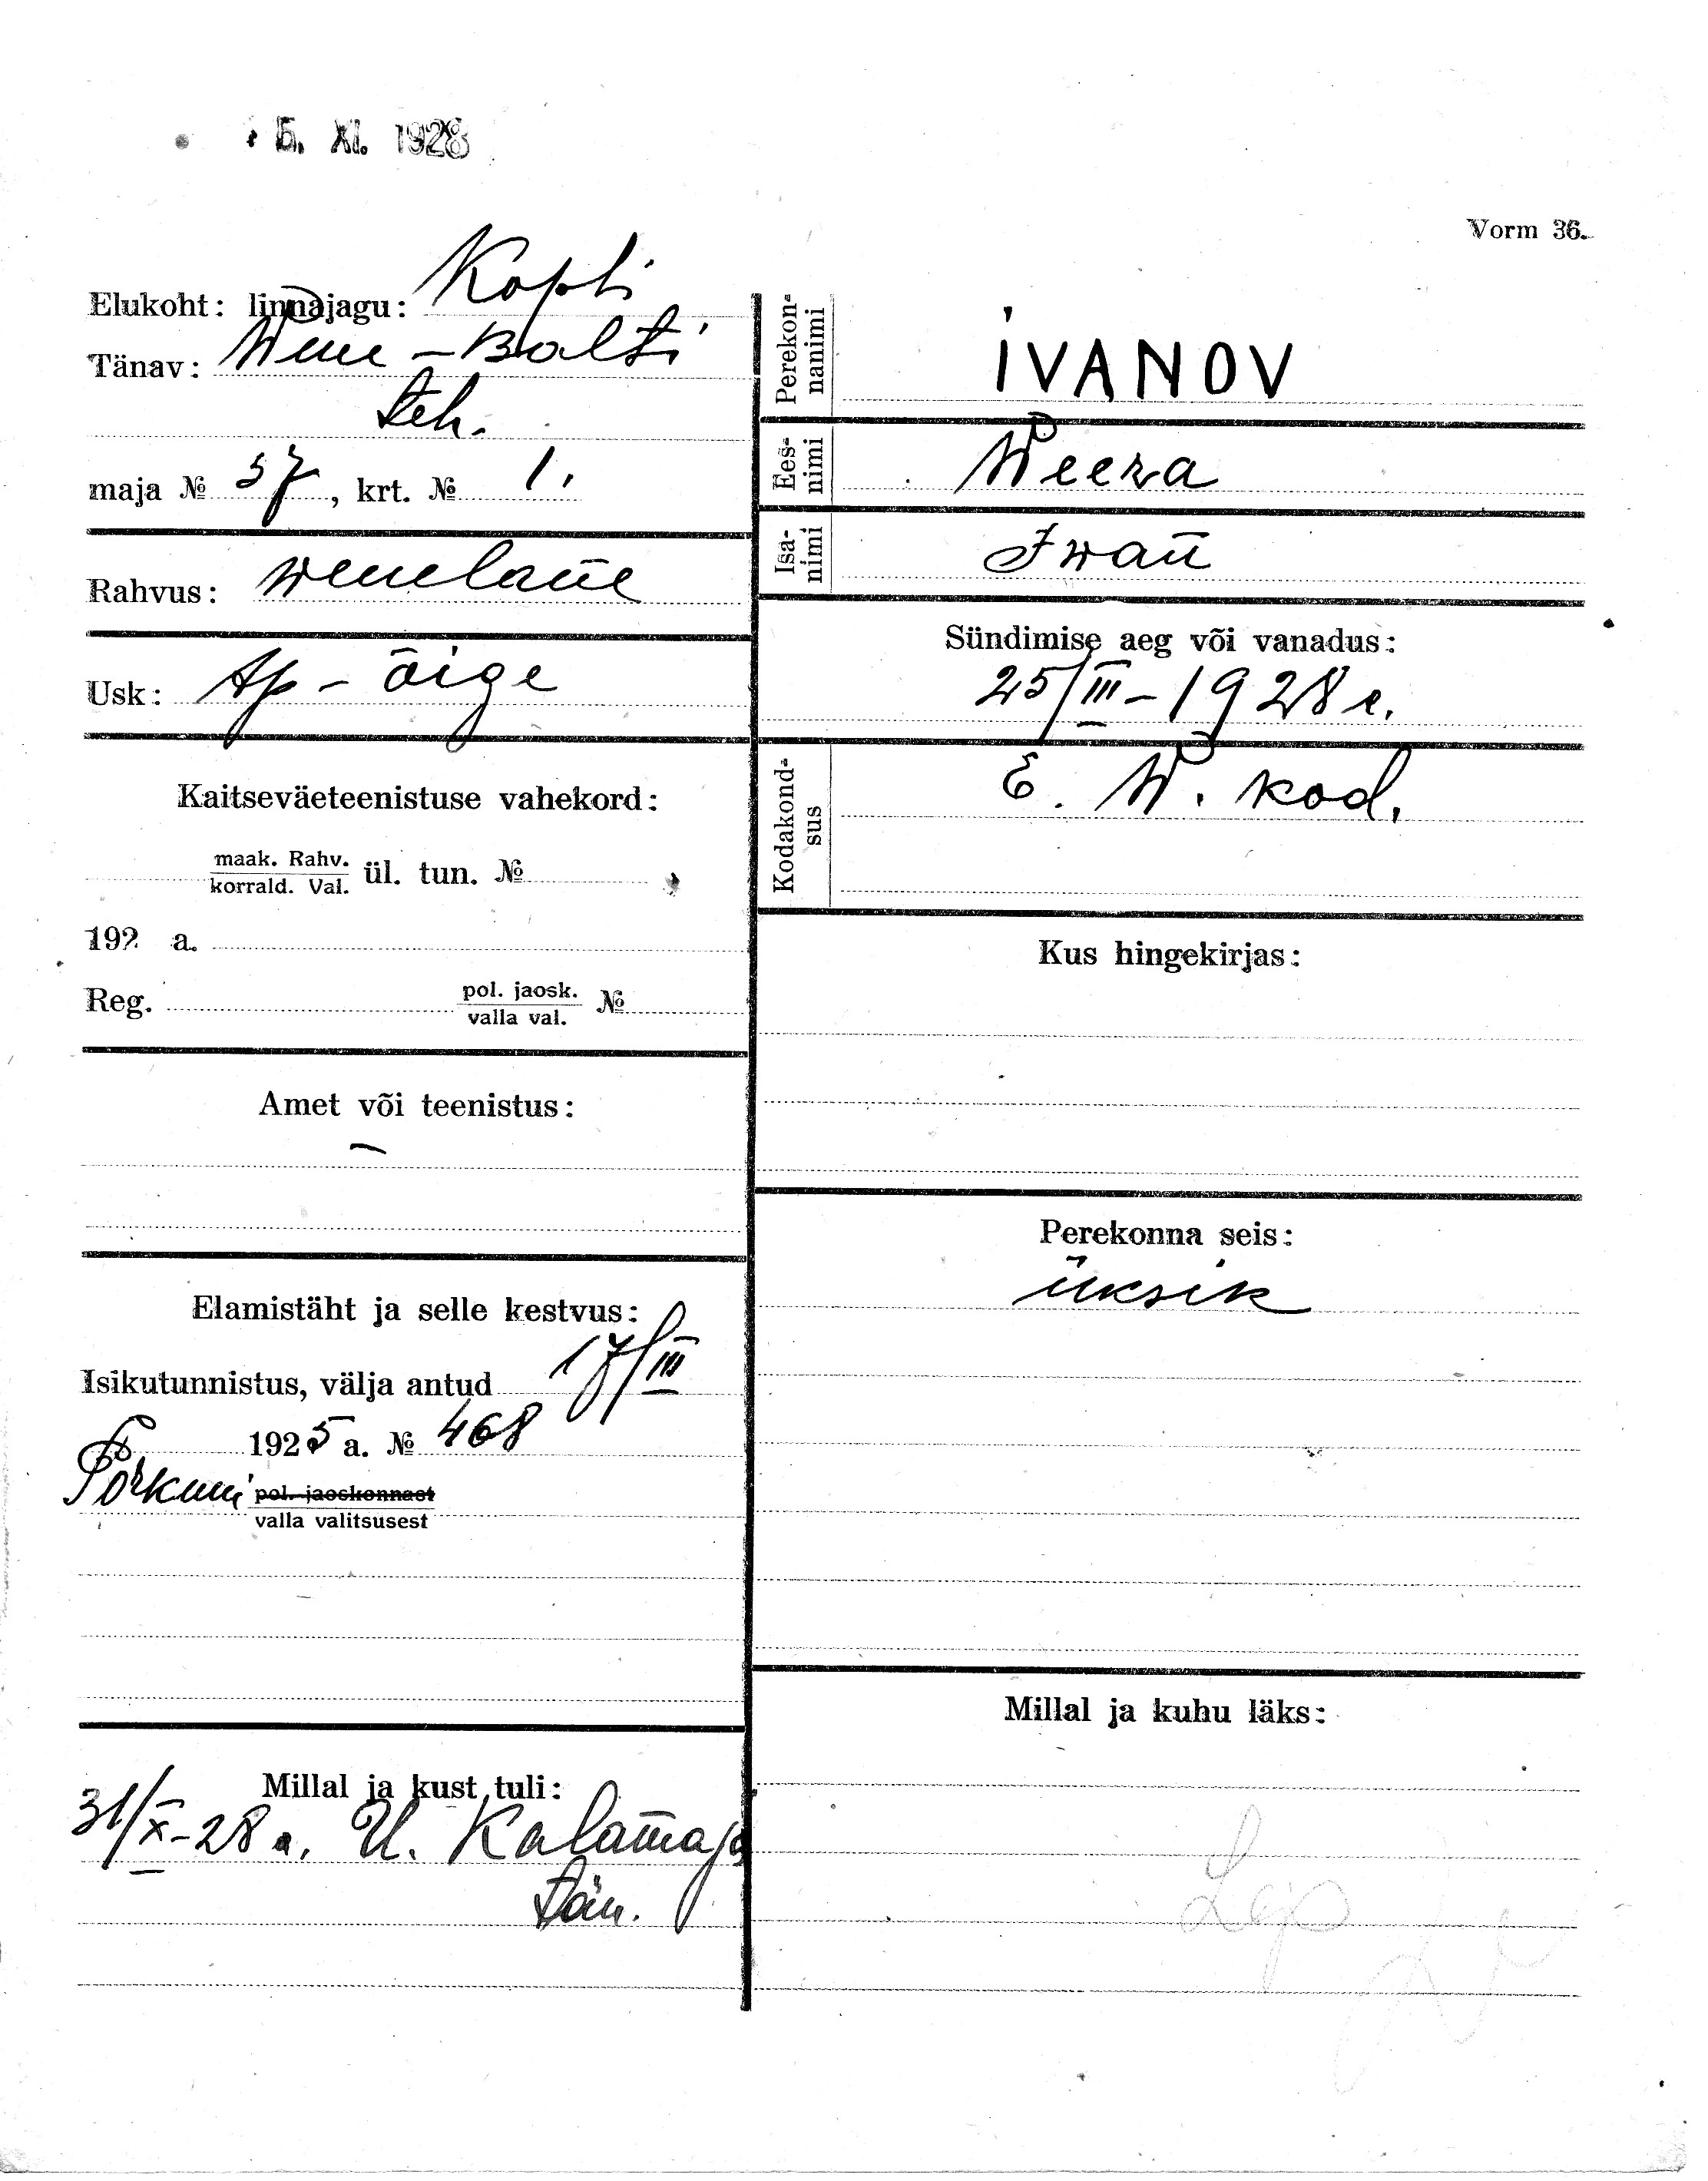 5. XI. 1928
Vorm 36.
Elukoht: linnajagu: Kopli
Tänav: Wene-Balti
teh.
maja № 57, krt. № 1.
Rahvus: wenelane
Usk: Ap-õige
Kaitseväeteenistuse vahekord:
maak. Rahv.
korrald. Val. ül. tun. №
192 a.
Reg. pol. jaosk. №
valla val.
Amet või teenistus:
–
Elamistäht ja selle kestvus:
Isikutunnistus, välja antud 17/III
1925 a. № 468
Porkuni pol. jaoskonnast
valla valitsusest
Millal ja kust tuli:
31/X-28 a. U. Kalamaja
tän.
Perekon-
nanimi
IVANOV
Ees-
nimi
Weera
Isa-
nimi
Iwan
Sündimise aeg või vanadus:
25/III-1928 a.
Kodakond-
sus
E. W. kod.
Kus hingekirjas:
Perekonna seis:
üksik
Millal ja kuhu läks: